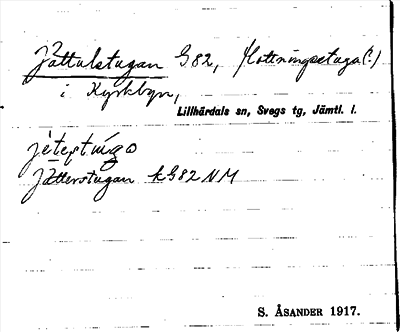 Jättulstugan G82, Slottningsstuga(!)
i Kyrkbyn,
Lillhärdals sn, Svegs tg, Jämtl. l.
jetestuga
Jätterstugan kG82 NM
S. ÅSANDER 1917.